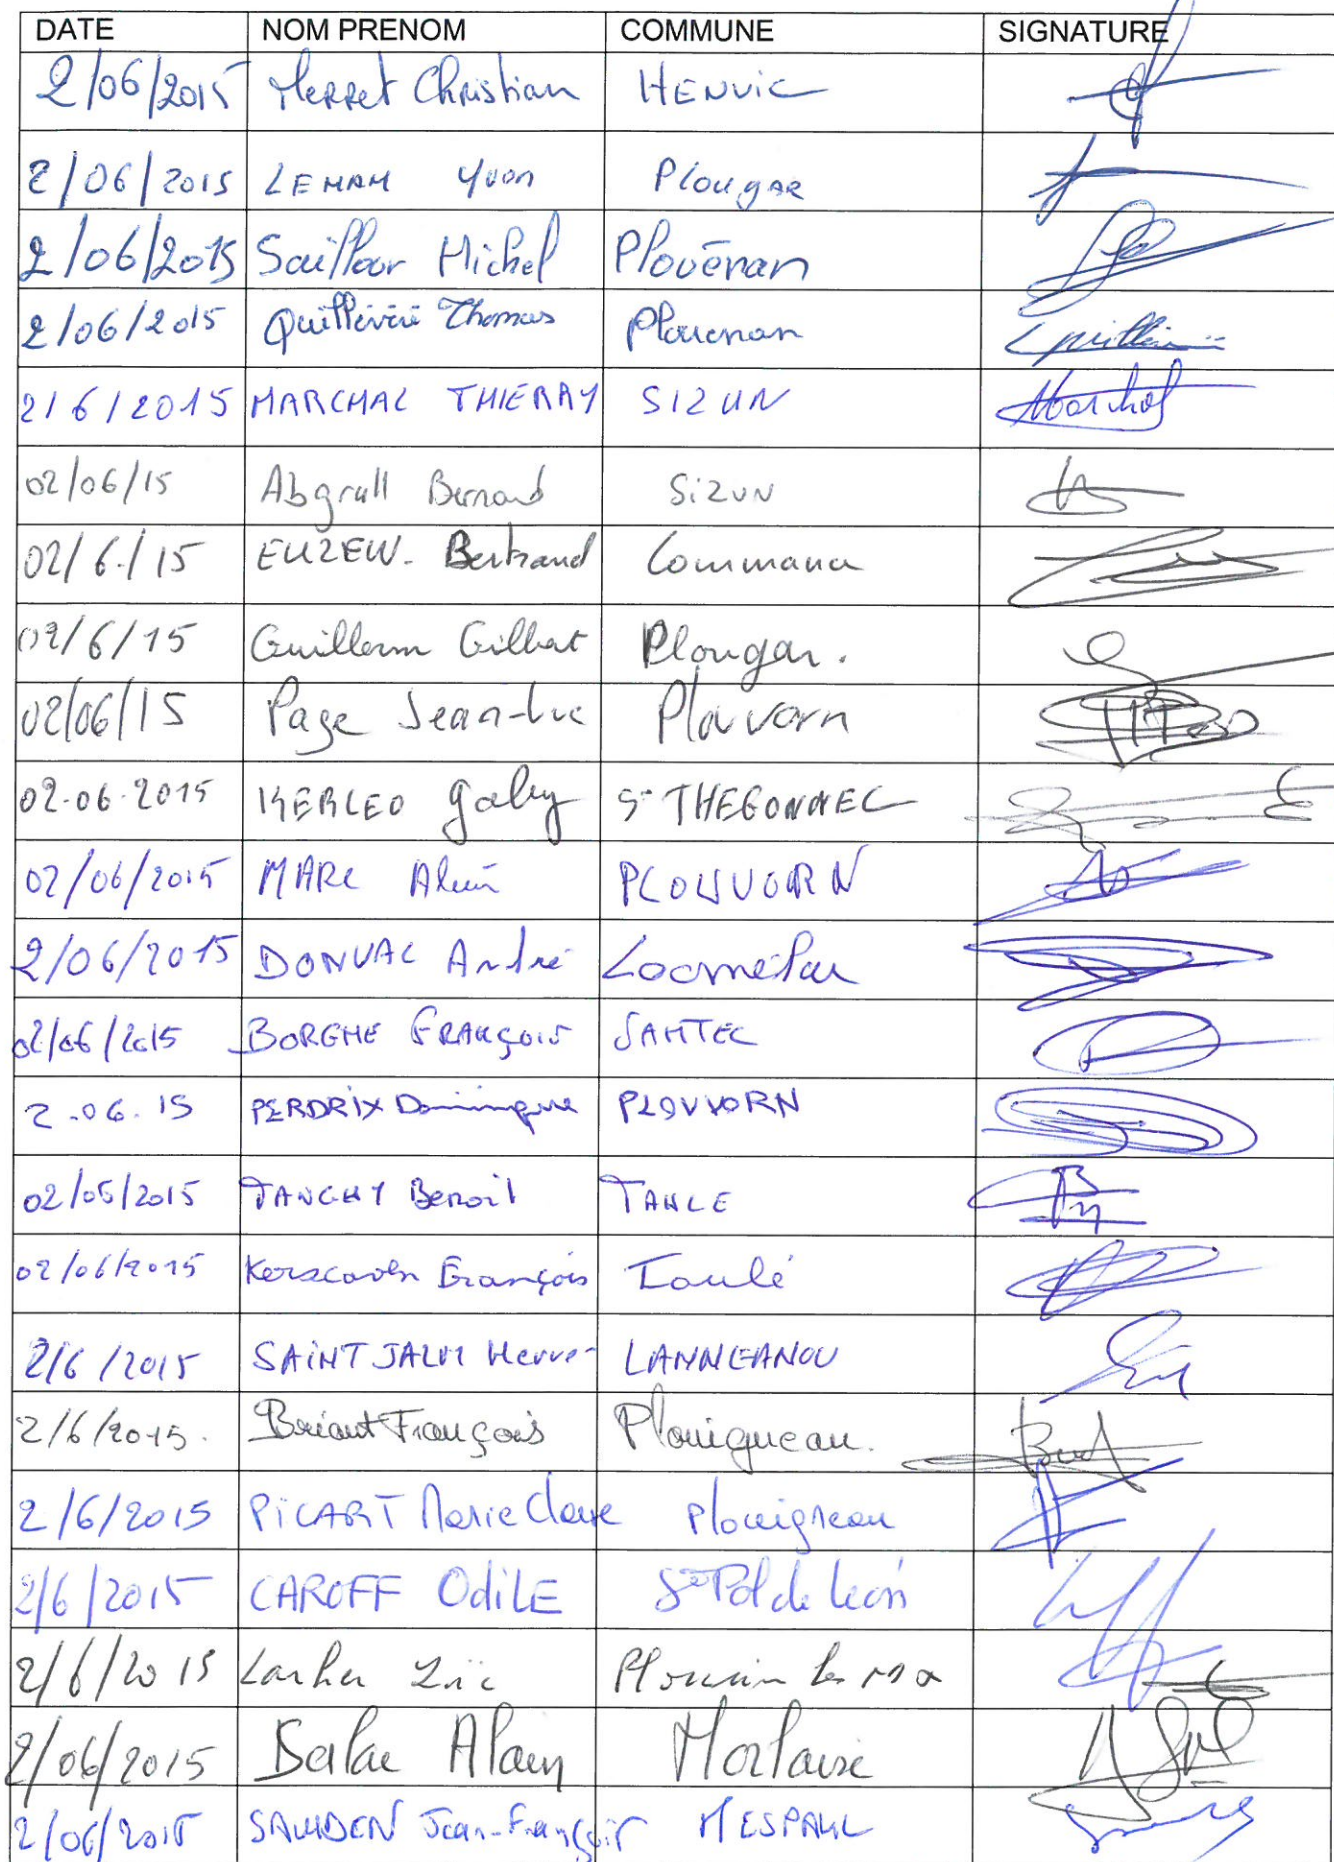 DATE NOM PRENOM COMMUNE SIGNATURE
2/06/2015 Merret Christian HENVIC
2/06/2015 LEMAM Yvon Plougar
2/06/2015 Saillour Michel Plouénan
2/06/2015 Quillévéré Thomas Plouenan
2/6/2015 MARCHAL THIERRY SIZUN Marchal
02/06/15 Abgrall Bernard SIZUN
02/6/15 EUZEN. Bertrand Commana
02/6/15 Guillerm Gilbert Plougar.
02/06/15 Page Jean-Luc Plouvorn
02.06.2015 KERLEO gaby St THEGONNEC
02/06/2015 MARC Alain PLOUVORN
2/06/2015 DONVAL André Locmélar
02/06/2015 BORGNE FRANÇOIS SANTEC
2.06.15 PERDRIX Dominique PLOUVORN
02/06/2015 TANGUY Benoit TAULE
02/06/2015 François Taulé
2/6/2015 SAINT JALM Hervé LANNEANOU
2/6/2015. Briant François Plouigneau.
2/6/2015 PICART Marie Claire Plouigneau
2/6/2015 CAROFF OdiLE St Pol de Léon
2/6/2015 Larher Loïc Plourin les Mx
2/06/2015 Alain Morlaix
2/06/2015 Jean-François MESPAUL